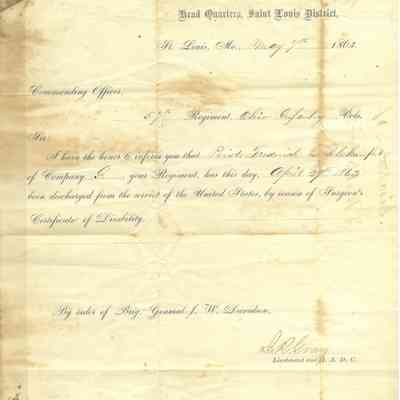 Head Quarters, Saint Louis District,
St. Louis, Mo., May 7th 1863
Commanding Officer,
57th Regiment, Ohio Infantry Vols.
Sir:
I have the honor to inform you that
of Company G your Regiment, has this day, April 29 1863
been discharged from the service of the United States, by reason of Surgeon's
Certificate of Disability.
By order of Brig. General J. W. Davidson,
Gray
Lieutenant and A. A. D. C.